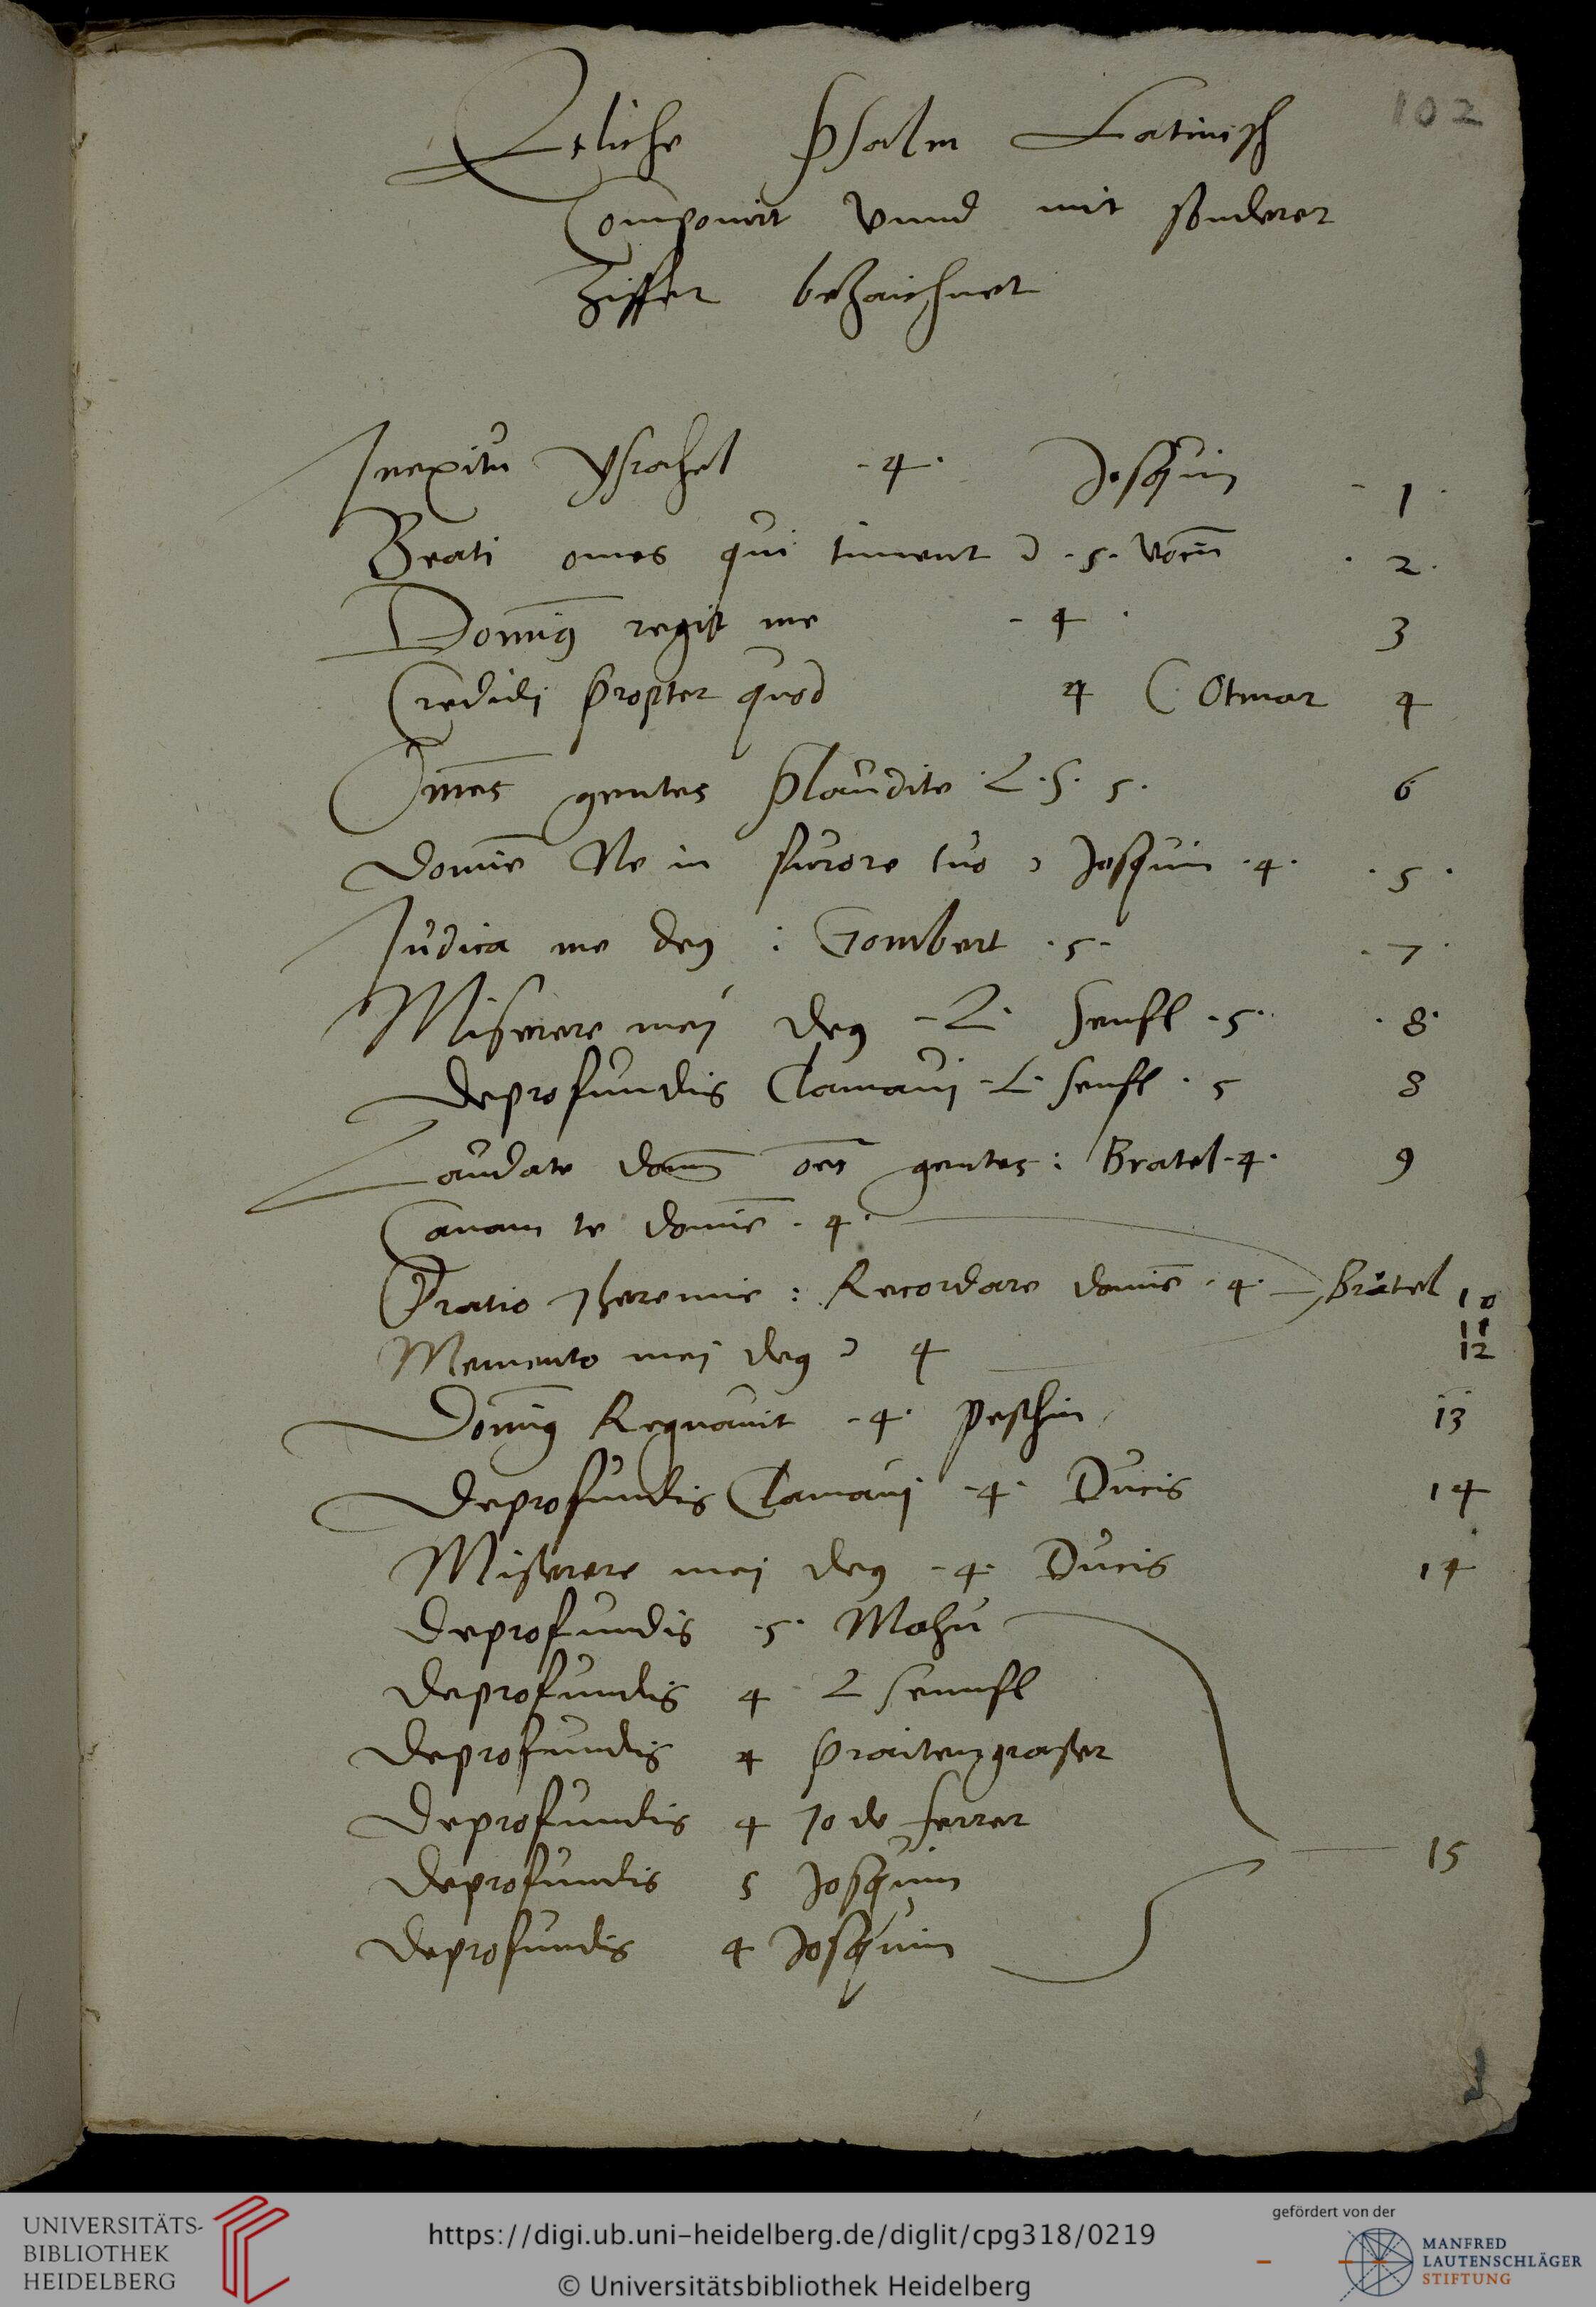 102
Etliche Psalm Latinisch
Componirt vnnd mit sonderer
Ziffer bezaichnet
Inexitu Ysrahel .4. Josquin 1
Beati omes qui timent .5. vocū 2.
Domīg regit me 4 3
Credidi propter quod 4 C. Otmar 4
Om̄es gentes plaudite .L.S. 5. 6
Domīe Ne in furore tuo Josquin .4. .5.
Judica me deg : Gombert .5. .7.
Miserere mej deg .L. Senfl .5. .8.
deprofundis Clamauj .L. Senfl .5 8
Laudate dom̄ oēs gentes : Bratel .4. 9
Canam te domīe .4.
Oratio Jheremie : Recordare domīe .4. Brätel 10
11
Memento mej deg 4 12
Domīg Regnauit .4. peschin 13
deprofundis Clamauj .4. Ducis 14
Miserere mej deg .4. Ducis 14
deprofundis .5. Mahu
deprofundis 4 L Sennfl
deprofundis 4 praitengraser
deprofundis 4 Jo de ferrer
15
deprofundis 5 Josquin
deprofundis 4 Josquin
UNIVERSITÄTS-
BIBLIOTHEK
HEIDELBERG
https://digi.ub.uni-heidelberg.de/diglit/cpg318/0219
© Universitätsbibliothek Heidelberg
gefördert von der
MANFRED
LAUTENSCHLÄGER
STIFTUNG